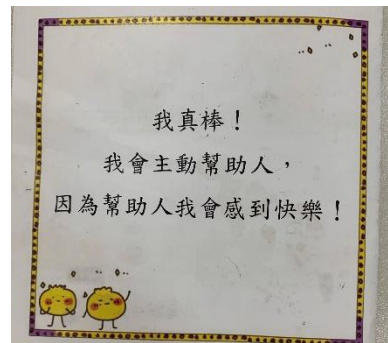 我真棒！
我會主動幫助人，
因為幫助人我會感到快樂！